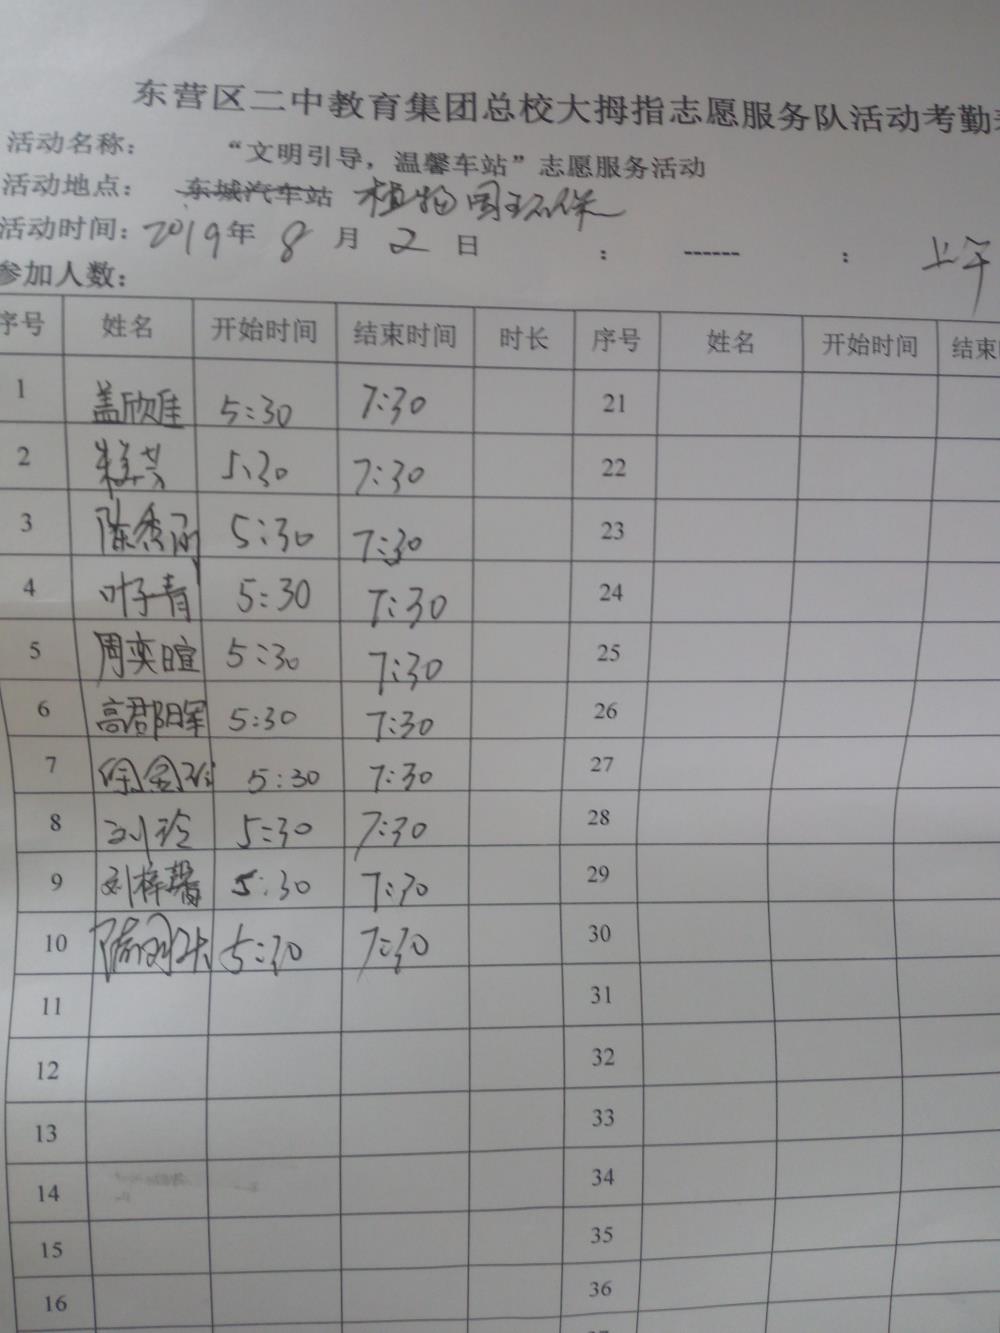 东营区二中教育集团总校大拇指志愿服务队活动考勤
活动名称： “文明引导，温馨车站”志愿服务活动
活动地点： 东城汽车站 植物园环保
活动时间：2019年 8 月 2 日 ： ------ ： 上午
参加人数：
序号 姓名 开始时间 结束时间 时长 序号 姓名 开始时间 结束
1 盖欣佳 5:30 7:30 21
2 5:30 7:30 22
3 陈秀 5:30 7:30 23
4 叶子青 5:30 7:30 24
5 周奕暄 5:30 7:30 25
6 高郡阳 5:30 7:30 26
7 徐金 5:30 7:30 27
8 刘玲 5:30 7:30 28
9 刘梓馨 5:30 7:30 29
10 5:30 7:30 30
11 31
12 32
13 33
14 34
15 35
16 36